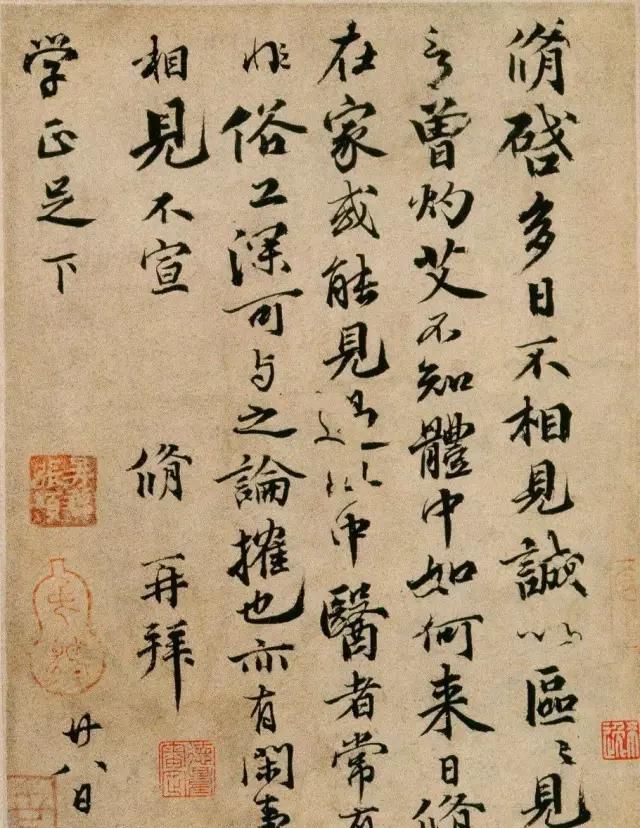 脩啓多日不相見誠以區〻見
言曾灼艾不知體中如何来日脩
在家或能見過中醫者常有
非俗工深可与之論搉也亦有閑事
相見不宣 脩再拜
学正足下 廿八日